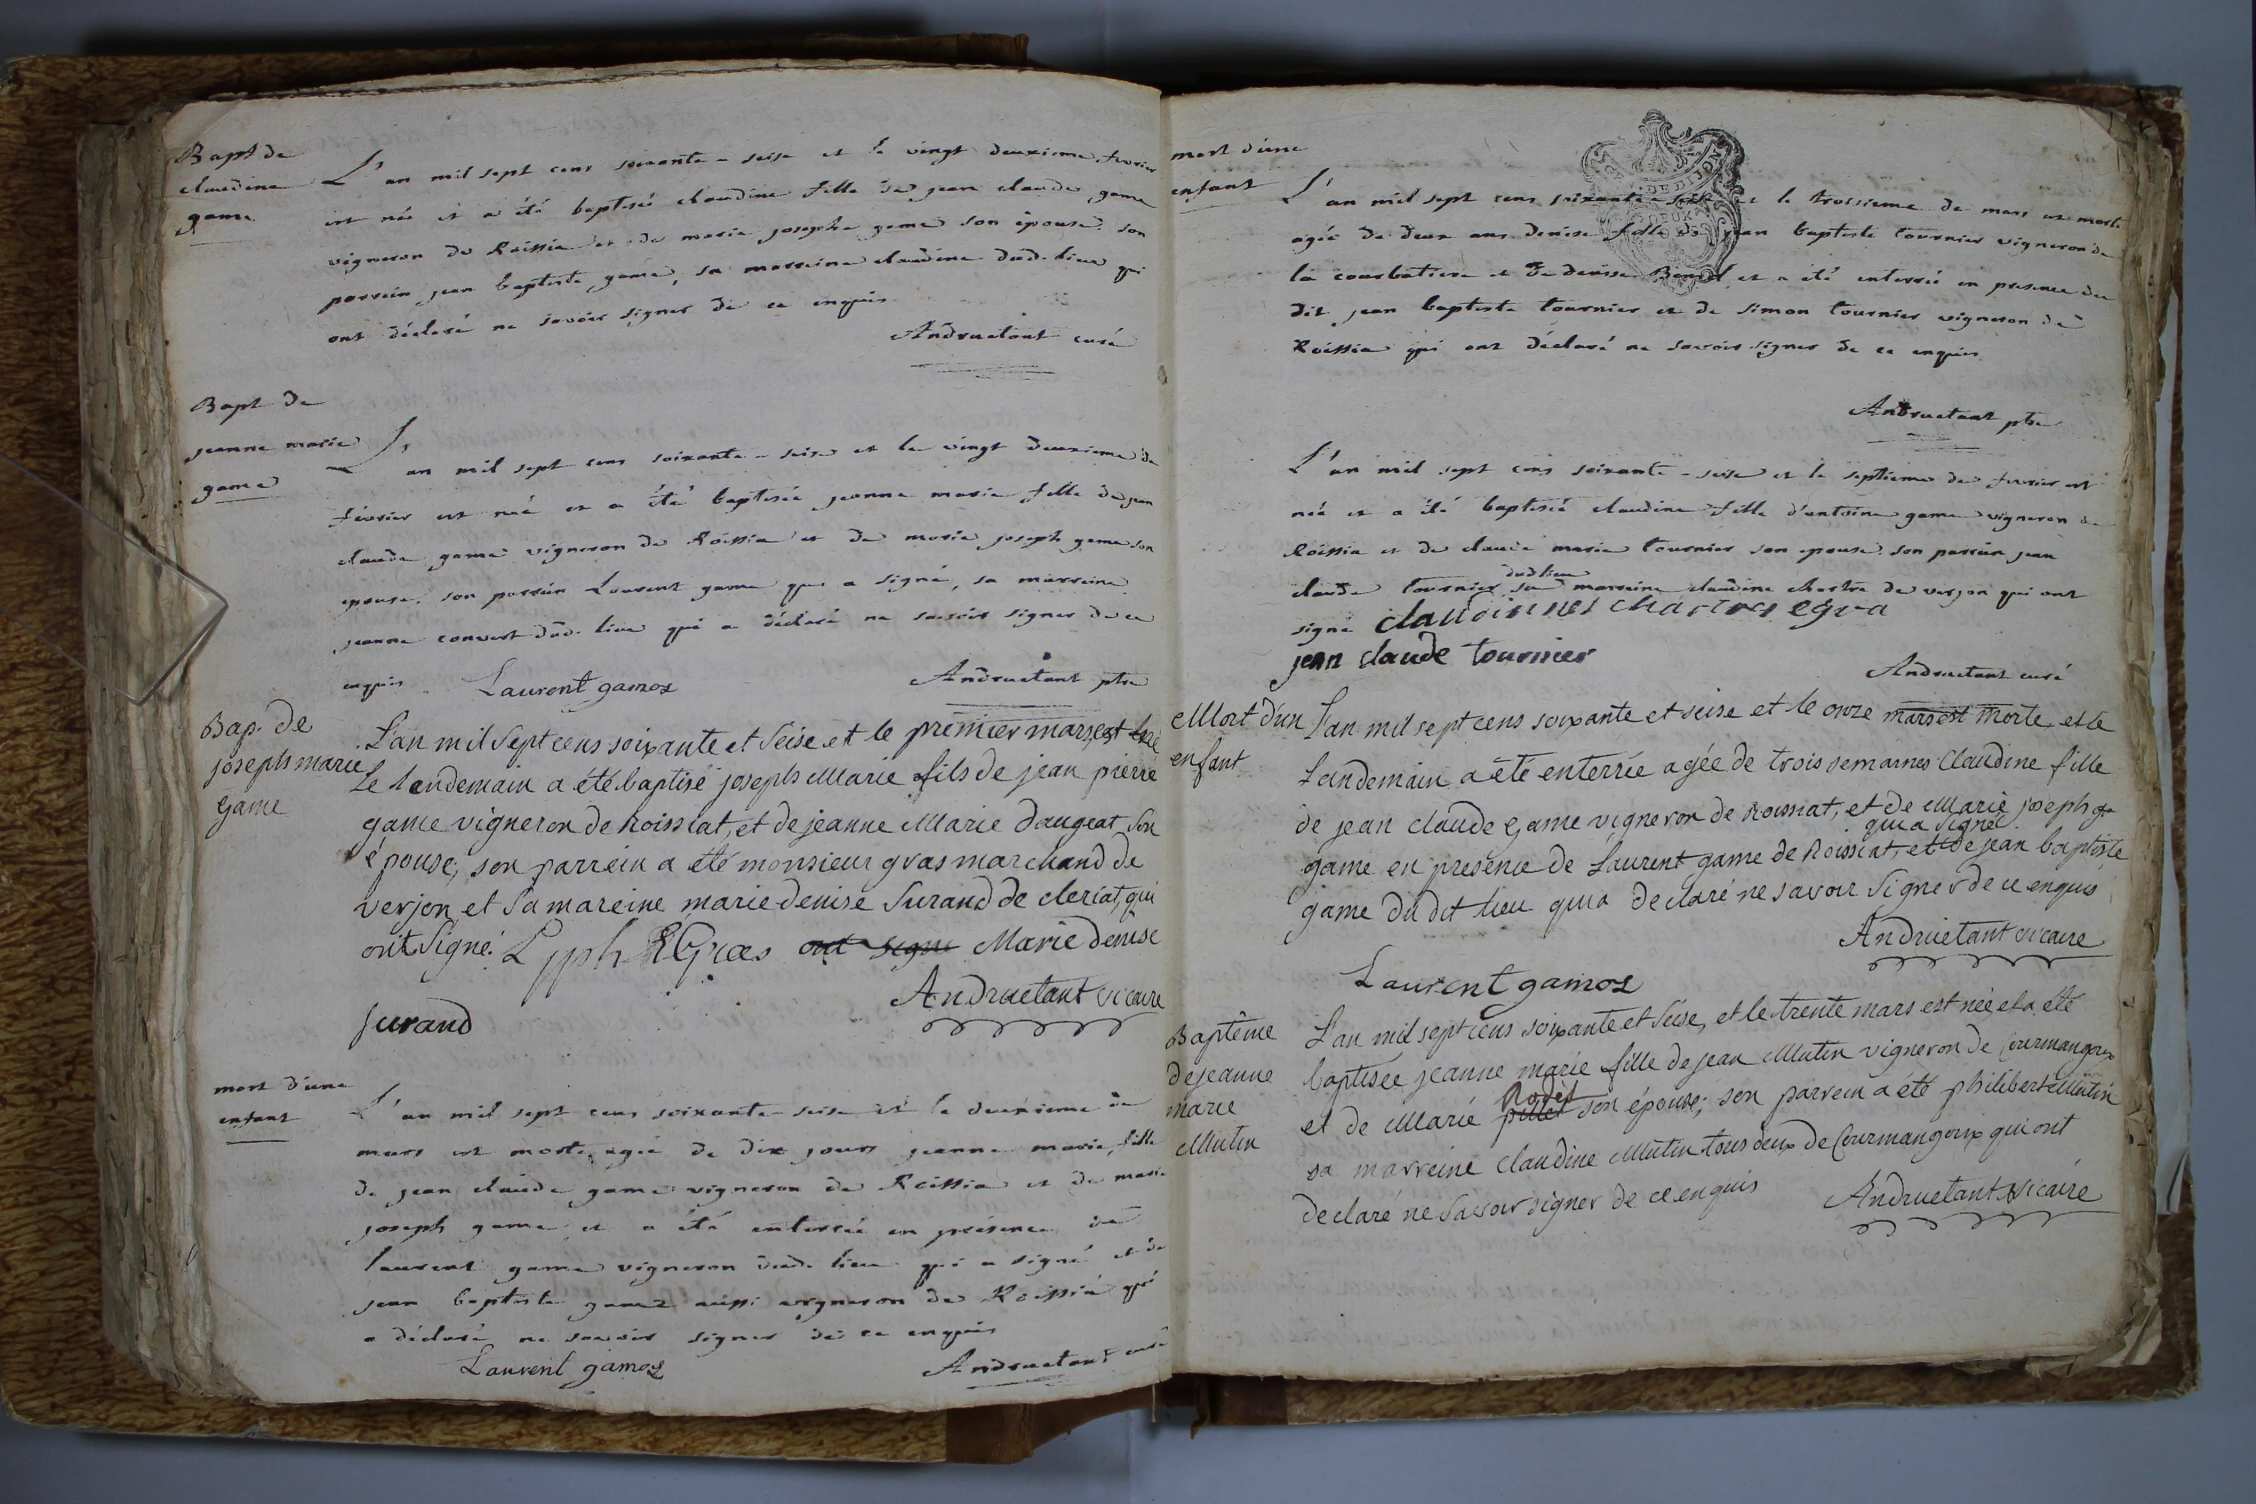 Bapt de
claudine
game
L'an mil sept cens soixante-seise et le vingt deuxieme fevrier
est née et a été baptisée claudine fille de jean claude game
vigneron de Roissia et de marie josephe game son épouse. son
parrein jean baptiste game, sa marreine claudine dud. lieu qui
ont déclaré ne savoir signer de ce enquis
Andruetant curé
Bapt de
jeanne marie
game
L'an mil sept cens soixante-seise et le vingt deuxieme de
février est née et a été baptisée jeanne marie fille de jean
claude game vigneron de Roissia et de marie joseph game son
epouse. son parrein Laurent game qui a signé, sa marreine
jeanne convert dud. lieu qui a déclaré ne savoir signer de ce
enquis Laurent gamos Andruetant ptre
Bap. de
joseph marie
game
L'an mil sept cens soixante et seise et le premier mars est né
le lendemain a été baptisé joseph Marie fils de jean pierre
game vigneron de Roissiat, et de jeanne Marie daugeat son
épouse; son parrein a été monsieur gras marchand de
verjon et sa mareine marie denise Surand de cleriat, qui
ont signé. Gras ont signé Marie denise
Andruetant vicaire
surand
mort d'une
enfant
L'an mil sept cens soixante-seise et le deuxieme de
mars est morte agée de dix jours jeanne marie, fille
de jean claude game vigneron de Roissia et de marie
joseph game et a été enterrée en présence de
laurent game vigneron dud. lieu qui a signé et de
jean baptiste game aussi vigneron de Roissia qui
a déclaré ne savoir signer de ce enquis
Laurent gamos Andruetant curé
mort d'une
enfant
L'an mil sept cens soixante-seise et le troisieme de mars est morte
agée de deux ans denise fille de jean baptiste tournier vigneron de
la courbatiere et de denise et a été enterrée en presence du
dit jean baptiste tournier et de simon tournier vigneron de
Roissia qui ont déclaré ne savoir signer de ce enquis
Andruetant ptre
L'an mil sept cens soixante-seise et le septieme de fevrier est
née et a été baptisée claudine fille d'antoine game vigneron de
Roissia et de claude marie tournier son epouse. son parrein jean
claude tournier dud lieu sa marreine claudine chartre de verjon qui ont
signé
jean claude tournier
Andruetant curé
Mort d'un
enfant
L'an mil sept cens soixante et seise et le onze mars est morte et le
landemain a été enterrée agée de trois semaines Claudine fille
de jean claude game vigneron de Roissiat, et de Marie joseph ga
game en presence de Laurent game de Roissiat, qui a signé et de jean baptiste
game du dit lieu qui a declaré ne savoir signer de ce enquis
Andruetant vicaire
Laurent gamos
Baptême
de jeanne
marie
Mutin
L'an mil sept cens soixante et seise, et le trente mars est née et a été
baptisée jeanne marie fille de jean Mutin vigneron de Courmangoux
et de Marie pillet Rodet son épouse; son parrein a été philibert Mutin
sa marreine Claudine Mutin tous deux de Courmangoux qui ont
declaré ne savoir signer de ce enquis Andruetant vicaire